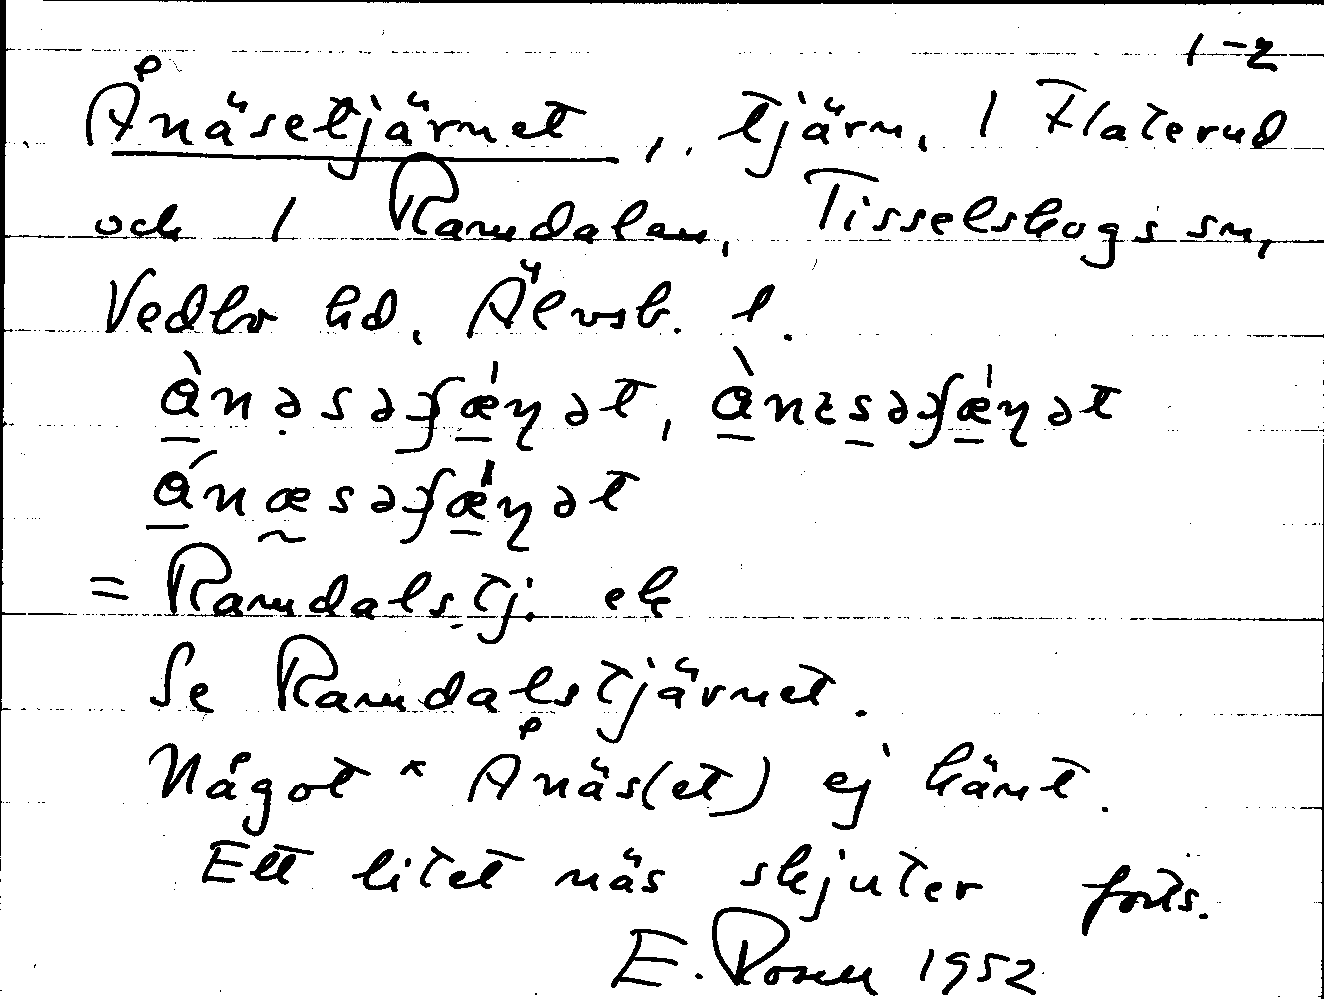 1-2
Ånäsetjärnet, tjärn, 1 Flaterud
och 1 Ramdalen, Tisselskogs sn,
Vedbo hd, Älvsb. l.
ὰnəsəʄǽɳət, ὰnɛsəʄǽɳət
ɑ́næsəʄǽɳət
= Ramdalstj. ek
Se Ramdalstjärnet.
Något * Ånäs(et) ej känt.
Ett litet näs skjuter forts.
E. Rosell 1952